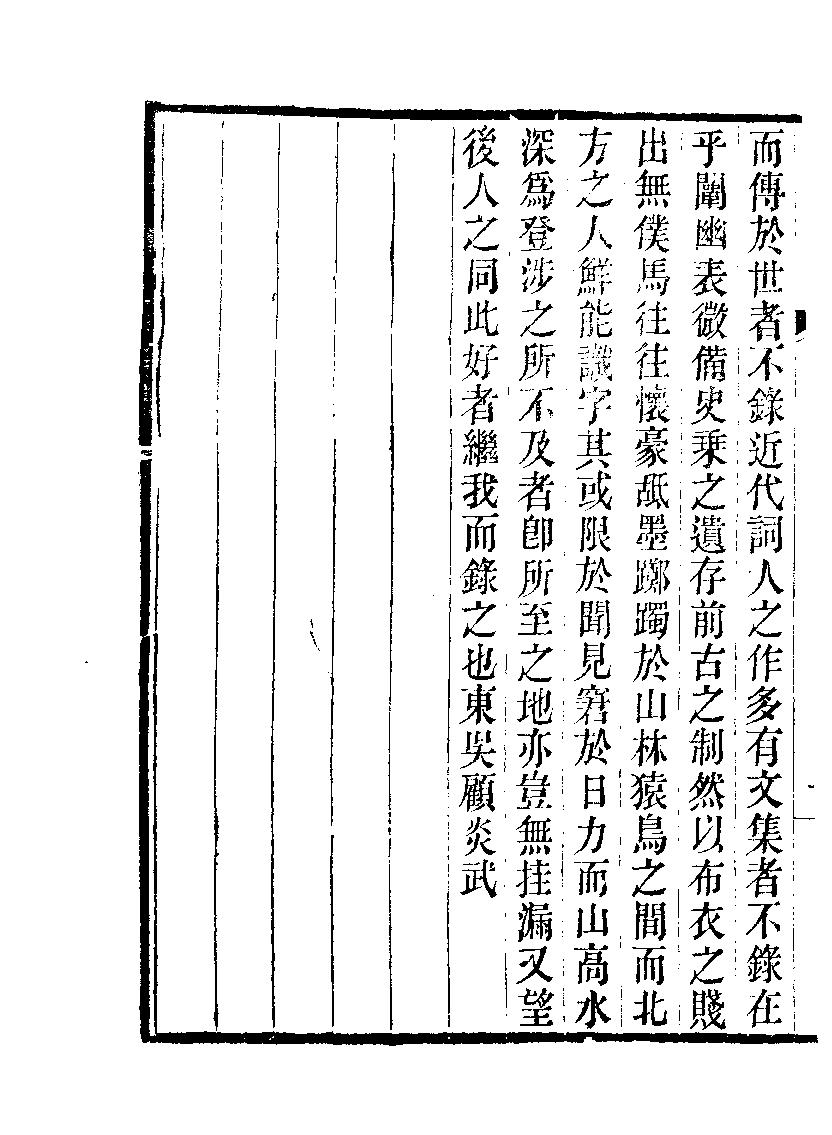 而傳於世者不錄近代詞人之作多有文集者不錄在
乎闡幽表微備史乗之遺存前古之制然以布衣之賤
出無僕馬往往懷豪舐墨躑躅於山林猿鳥之間而北
方之人鮮能識字其或限於聞見窘於日力而山高水
深爲登涉之所不及者卽所至之地亦豈無挂漏又望
後人之同此好者繼我而錄之也東吳顧炎武